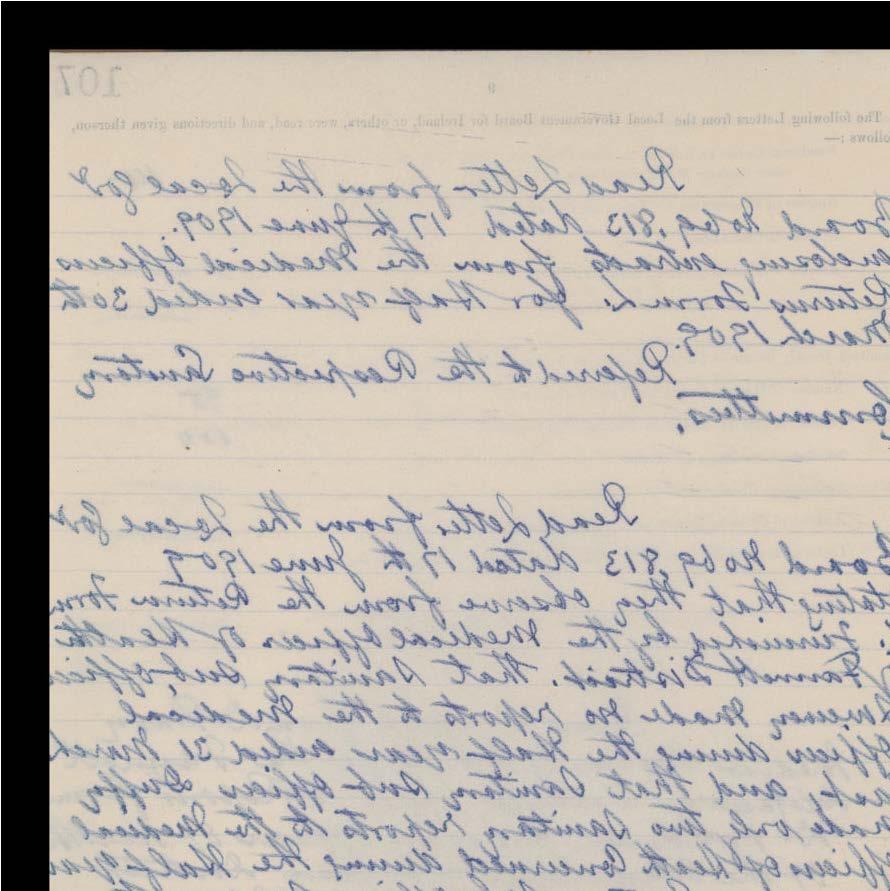 107
9
The following Letters from the Local Government Board for Ireland, or others, were read, and directions given thereon,
ollows :—
Read Letter from the Local Gov
Board No 69,813 dated 17th June 1909.
enclosing extracts from the Medical Officers
Returns Form L. for Half year ended 30th
March 1909.
Referred to the Respective Sanitary
Committees.
Read Letter from the Local Gov
Board No 69,813 dated 17th June 1909
tating that they observe from the Return Form
furnished by the Medical Officer of Health
District. that Sanitary Sub-Office
made no reports to the Medical
Officer during the Half-year ended 31 March
last, and that Sanitary Sub Officer Duffy
made only two Sanitary reports to the Medical
Officer of Health Concerned during the Half-year